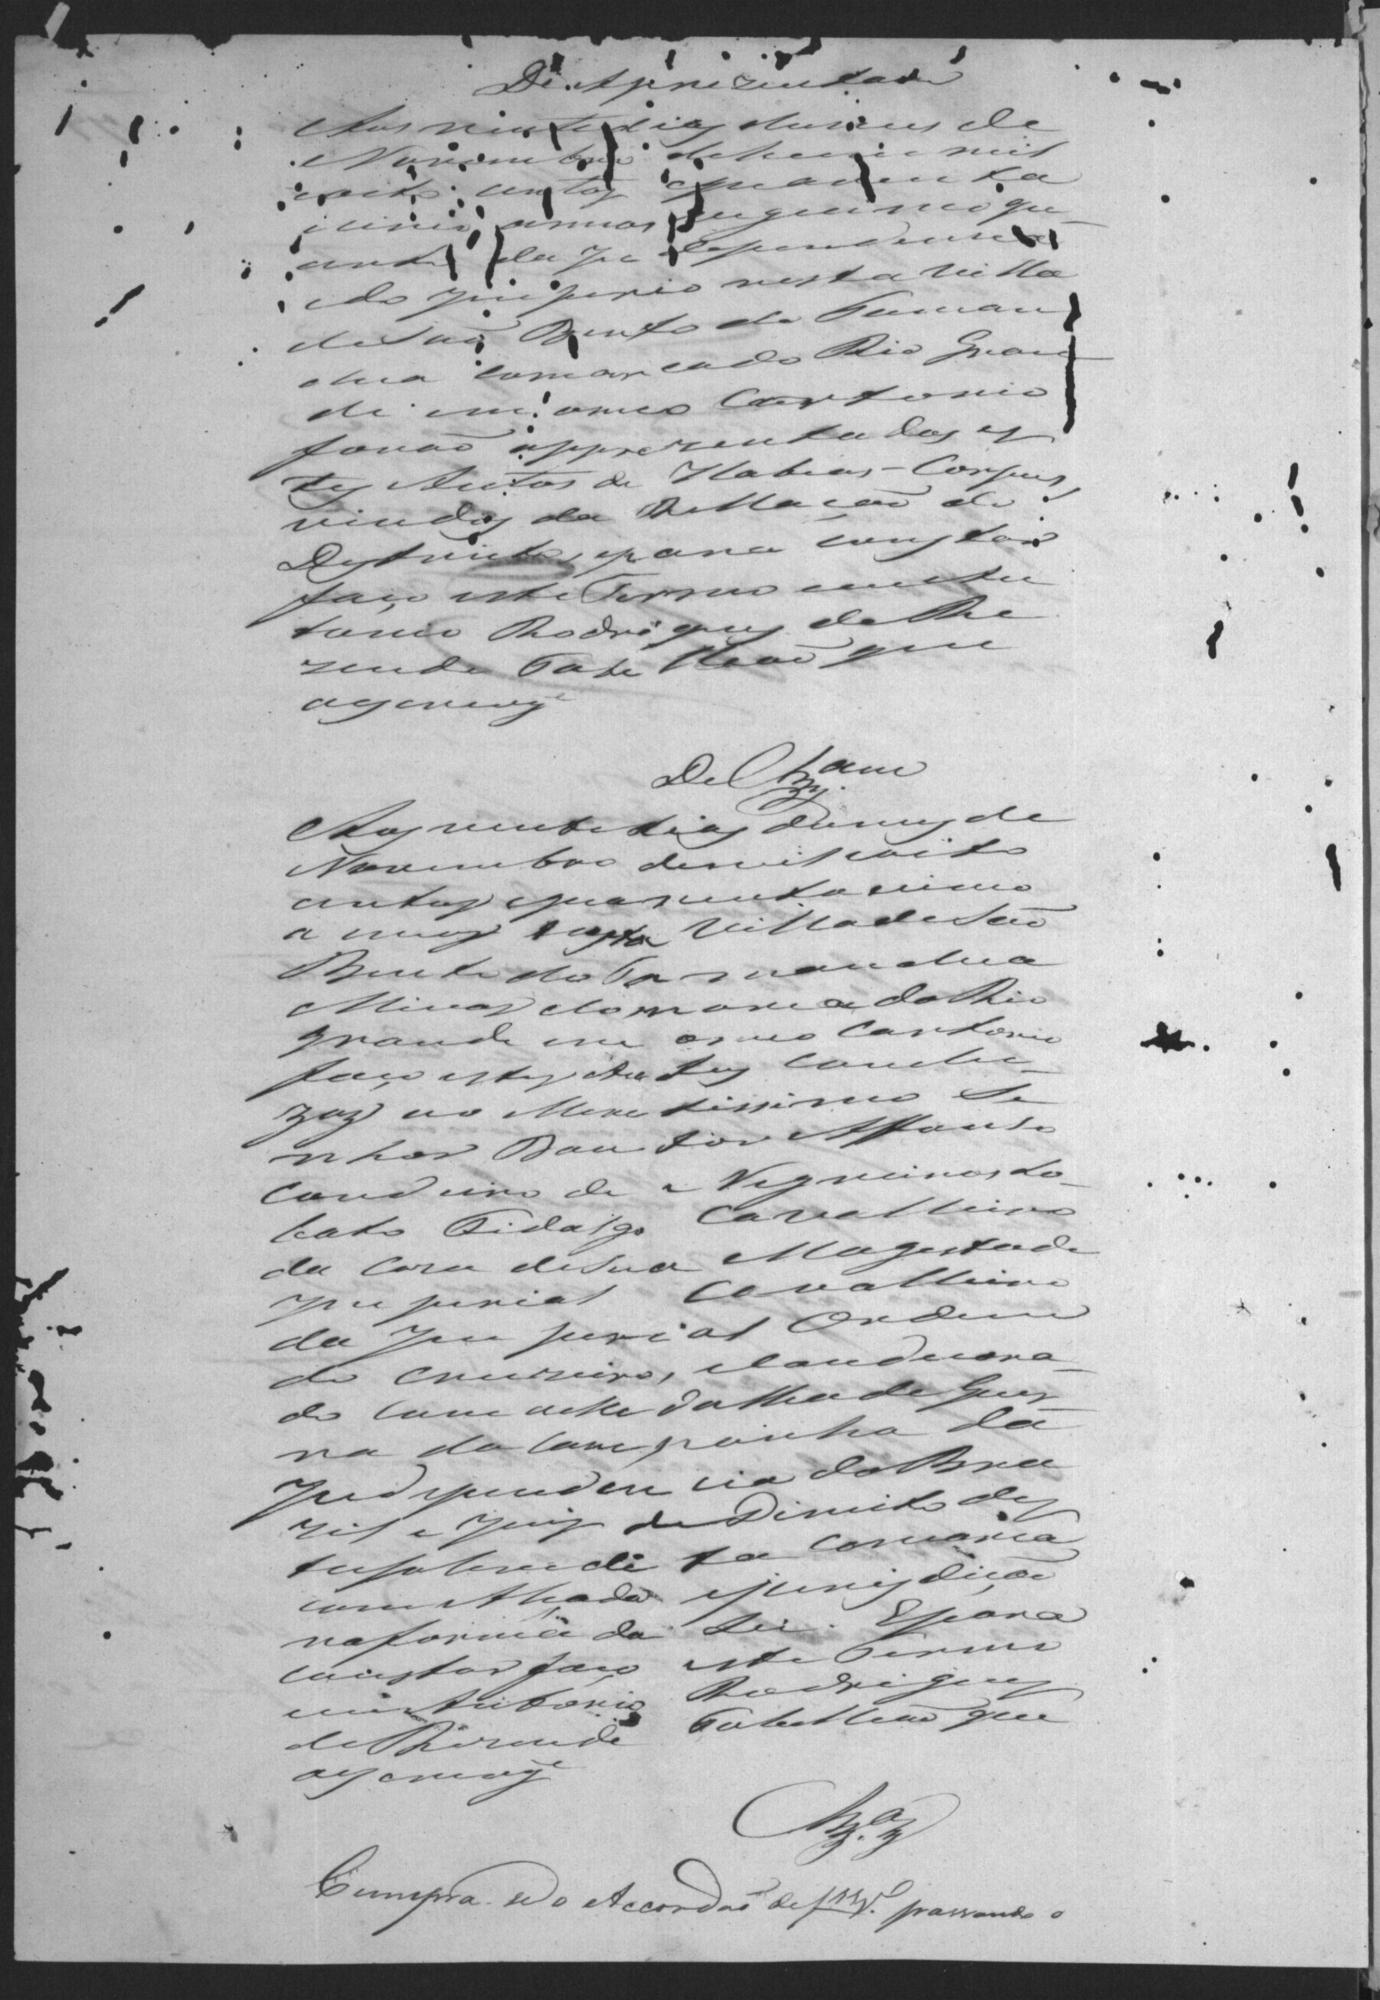 De Aprezentada
Aos vinte dias domes de
Novembro dehum mil
oito centos quarenta
e cinco annos vigecimo qu
arto da In dependencia
edo Imperio nesta Villa
de São Bento do Taman
dua comarca do Rio Gran
de em omeo Cartorio
forão apprezentados es
tes Autos de Habeas-Corpus
vindos da Rellação do
Destricto, epara constar
faço este Termo eu An
tonio Rodrigues de Re
zende Tabellião que
oescrevy
De Clzam
Aos vinte dias domes de
Novembro demil eoito
centos equarenta cinco
annos nesta Villa de São
Bento do Ta mandua
Minas Comarca do Rio
grande em omeo Cartorio
faço estes Autos conclu-
zos ao Meretissimo Se
nhor Doutor Affonso
Cordeiro de Negreiros Lo-
bato Fidalgo Cavalleiro
da Caza deSua Magestade
Imperial Cavalleiro
da Im perial Ordem
do Cruzeiro, Condecora-
do com aMe dalha de Guer
ra da Campanha da
Independen cia do Bra
zil e Juiz de Direito des
ta comarca
com Alçada ejurisdição
naforma da Lei. Epara
constar faço este Termo
eu Antonio Rodrigues
de Rezende Tabellião que
oescrevy
Clzos
Cumpra-se o Accordão de passando o